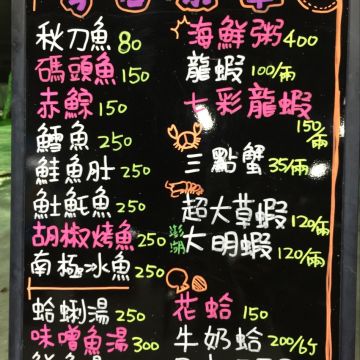 秋刀魚 80
碼頭魚 150
赤鯮 150
鱈魚 250
鮭魚肚 250
魟魠魚 250
胡椒烤魚 250
南極冰魚 250
蛤蜊湯 250
味噌魚湯 300
海鮮粥 400
龍蝦 100/兩
七彩龍蝦 150/兩
三點蟹 35/兩
超大草蝦 120/兩
澎湖 大明蝦 120/兩
花蛤 150
牛奶蛤 200/65